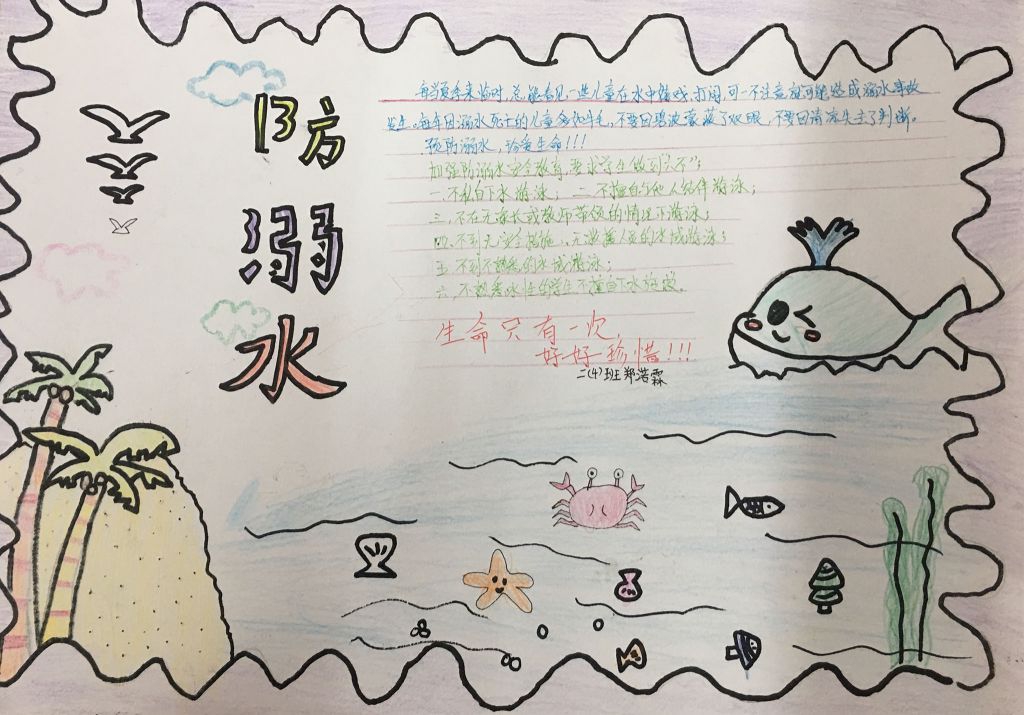 防溺水
每当夏季来临时,总能看见一些儿童在水中嬉戏、打闹,可一不注意就可能造成溺水事故
发生。每年因溺水死亡的儿童多如牛毛,不要因碧波蒙蔽了双眼,不要因清凉失去了判断。
预防溺水,珍爱生命!!!
加强防溺水安全教育,要求学生做到“六不”:
一.不私自下水游泳; 二.不擅自与他人结伴游泳;
三.不在无家长或教师带领的情况下游泳;
四.不到无安全措施、无救援人员的水域游泳;
五.不到不熟悉的水域游泳;
六.不熟悉水性的学生不擅自下水施救。
生命只有一次,
好好珍惜!!!
二(4)班郑浩霖